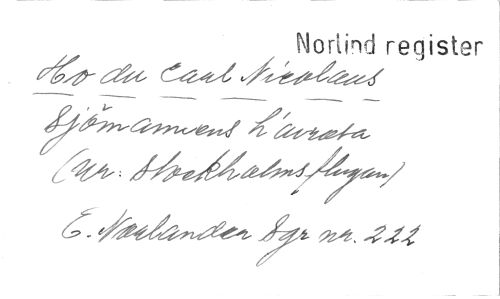 Norlind register
Ho du Carl Nicolaus
Sjömannens h'avresa
(ur: Stockholmsflugan)
E. Norlander Sgr nr. 222